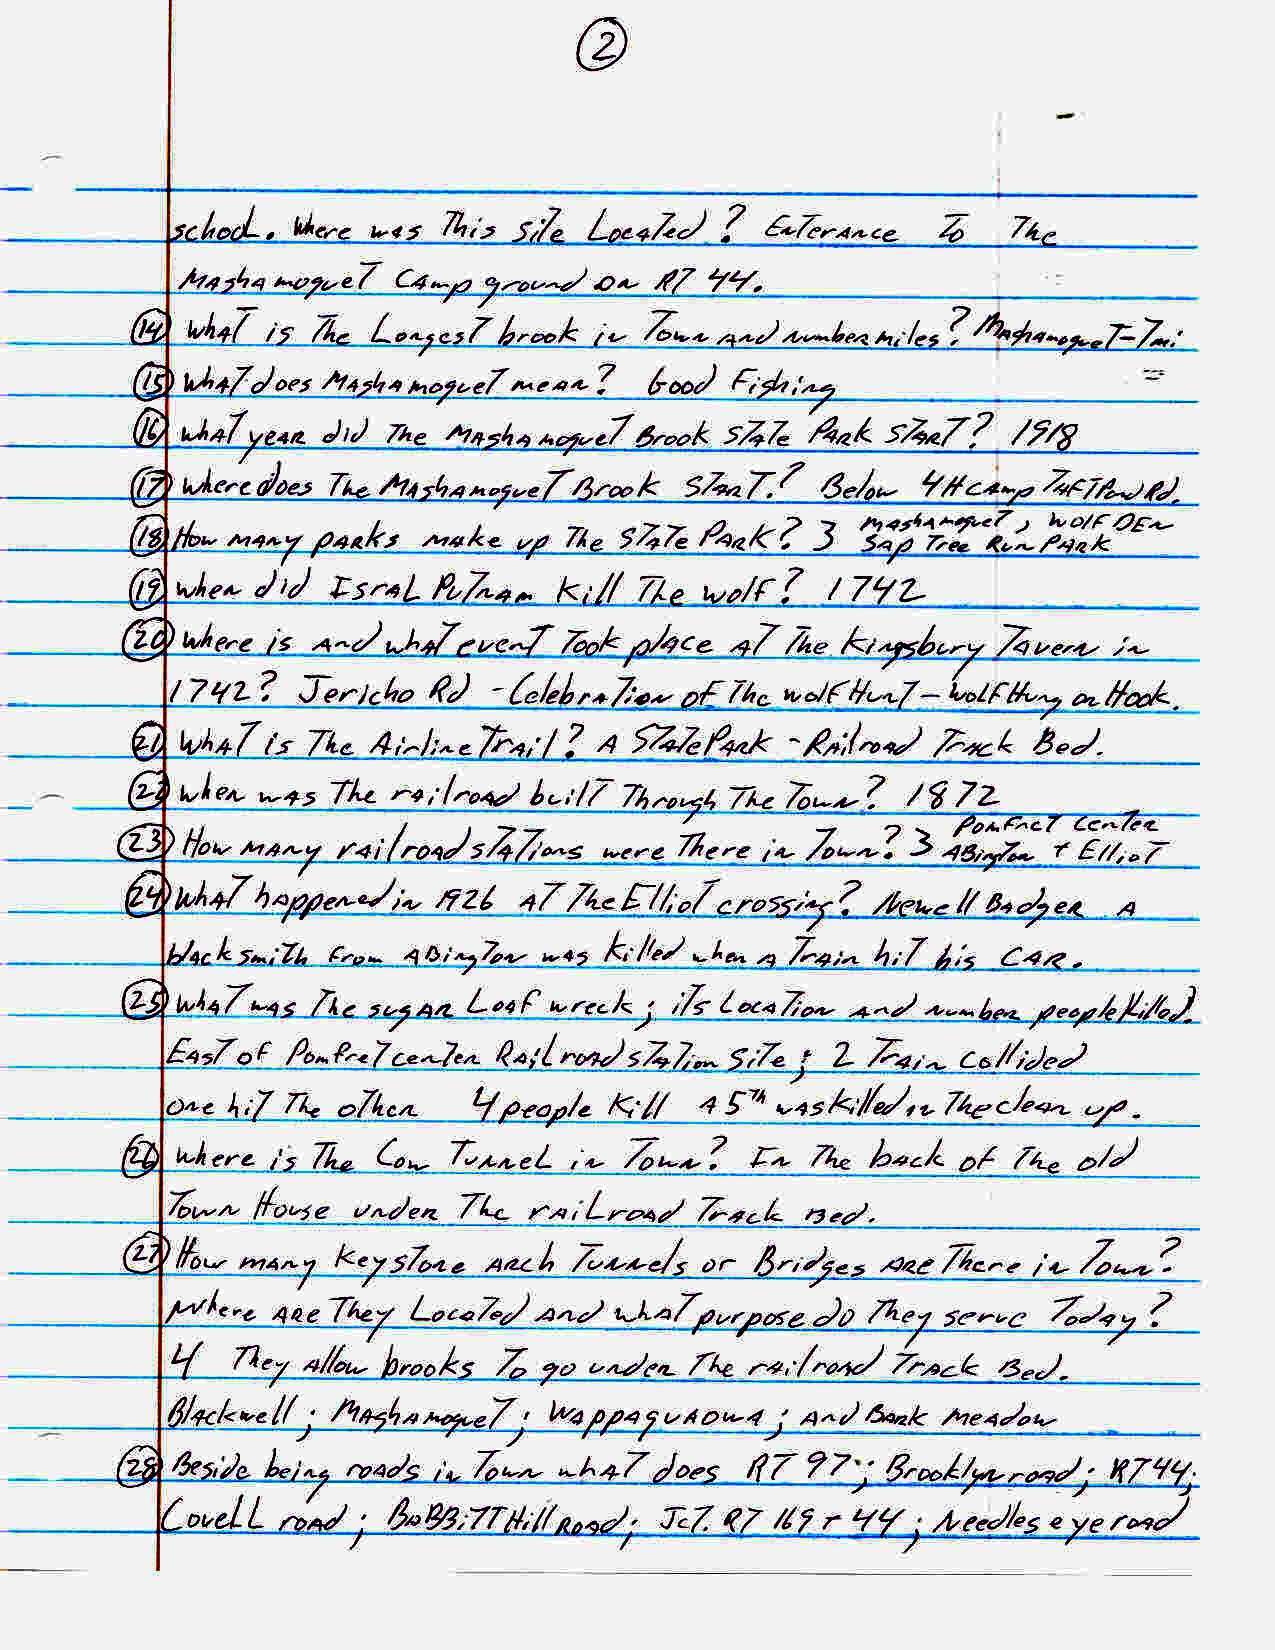 2
school. Where was This Site Located? Enterance To The
Mashamoquet Campground on RT 44.
14 What is The Longest brook in Town and number miles? Mashamoquet-7mi
15 What does Mashamoquet mean? Good Fishing
16 What year did The Mashamoquet Brook State Park Start? 1918
17 Where does The Mashamoquet Brook Start? Below 4H camp Taft Pond Rd.
18 How many parks make up The State Park? 3 Mashamoquet, Wolf Den
Sap Tree Run Park
19 When did Isral Putnam Kill The wolf? 1742
20 Where is and what event Took place at The Kingsbury Tavern in
1742? Jericho Rd - Celebration of The Wolf Hunt - Wolf Hung on Hook.
21 What is The Airline Trail? A State Park - Railroad Track Bed.
22 When was The railroad built Through The Town? 1872
23 How many railroad stations were There in Town? 3 Pomfret Center
Abington + Elliot
24 What happened in 1926 at The Elliot crossing? Newell Badger a
blacksmith from Abington was Killed when a Train hit his car.
25 What was The sugar Loaf wreck; its Location and number people Killed?
East of Pomfret center Railroad station site; 2 Train collided
one hit The other 4 people Kill A 5th was Killed in The clean up.
26 Where is The Cow Tunnel in Town? In The back of The old
Town House under The railroad Track Bed.
27 How many Keystone arch Tunnels or Bridges are There in Town?
Where are They Located and what purpose do They serve Today?
4 They allow brooks To go under The railroad Track Bed.
Blackwell; Mashamoquet; Wappaquadwa; and Bark Meadow
28 Beside being roads in Town what does RT 97; Brooklyn road; RT 44;
Covell road; Babbitt Hill Road; Jct. RT 169 + 44; Needles eye road